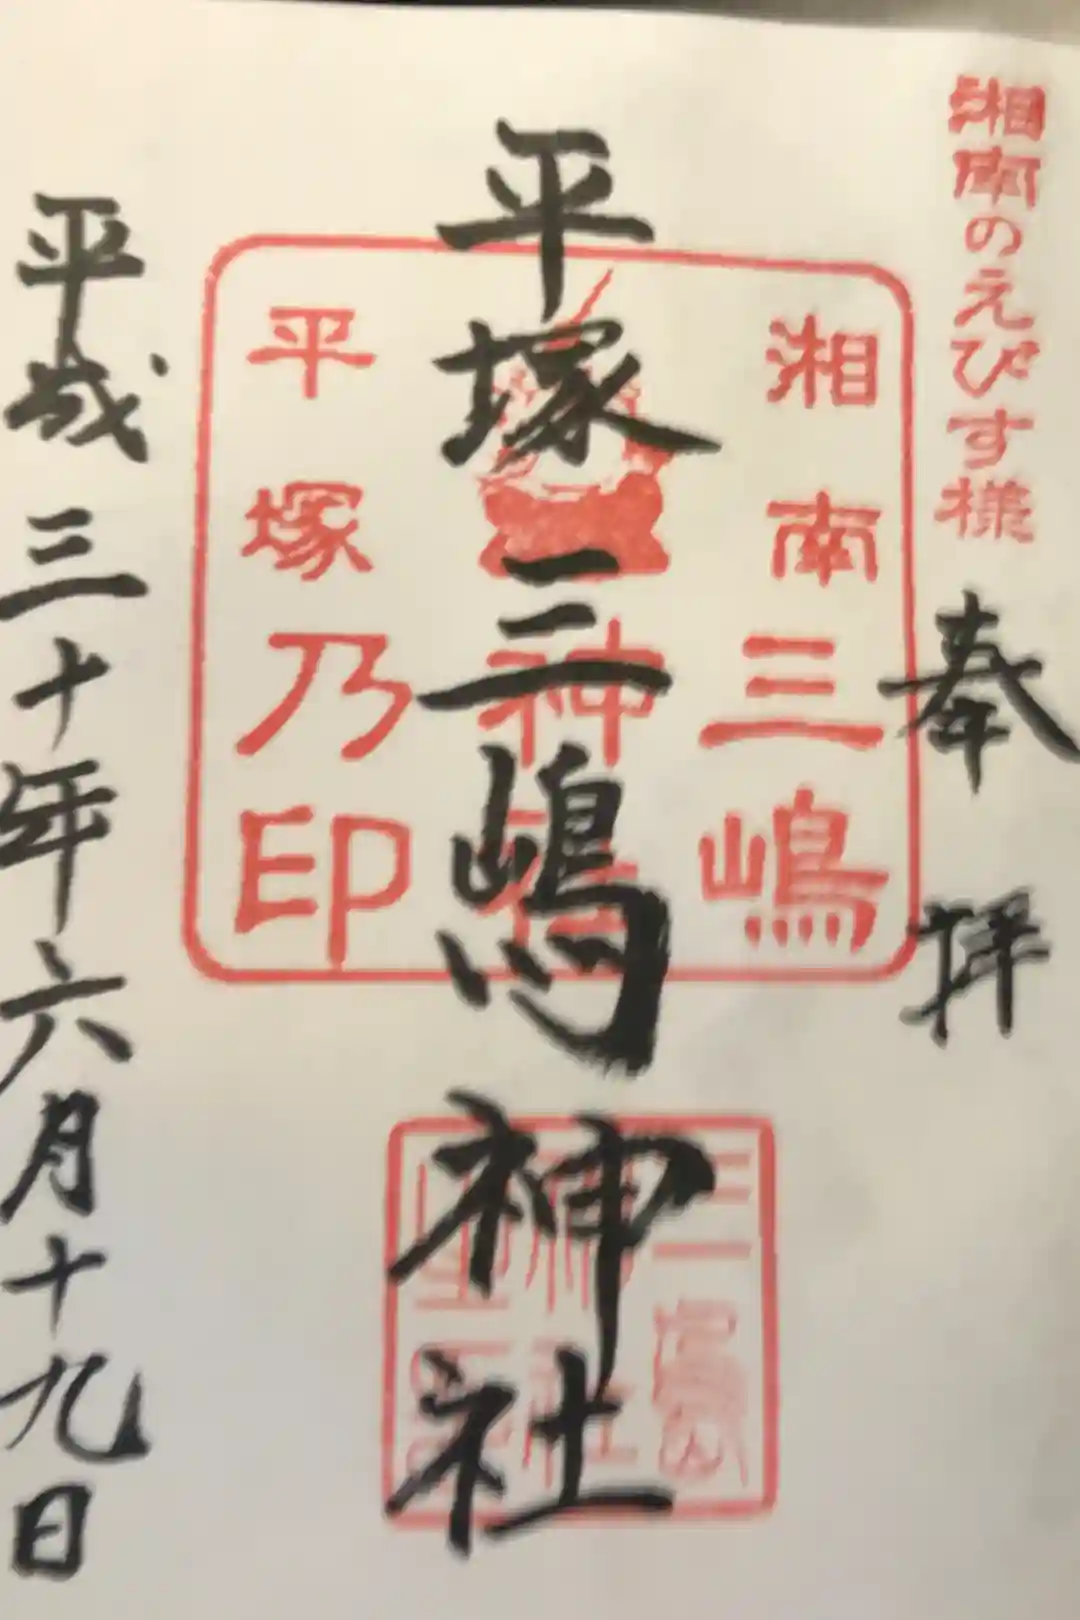 湘南のえびす様
奉拝
湘南三嶋
神社
平塚乃印
平塚三嶋神社
三嶋
神社
平成三十年六月十九日